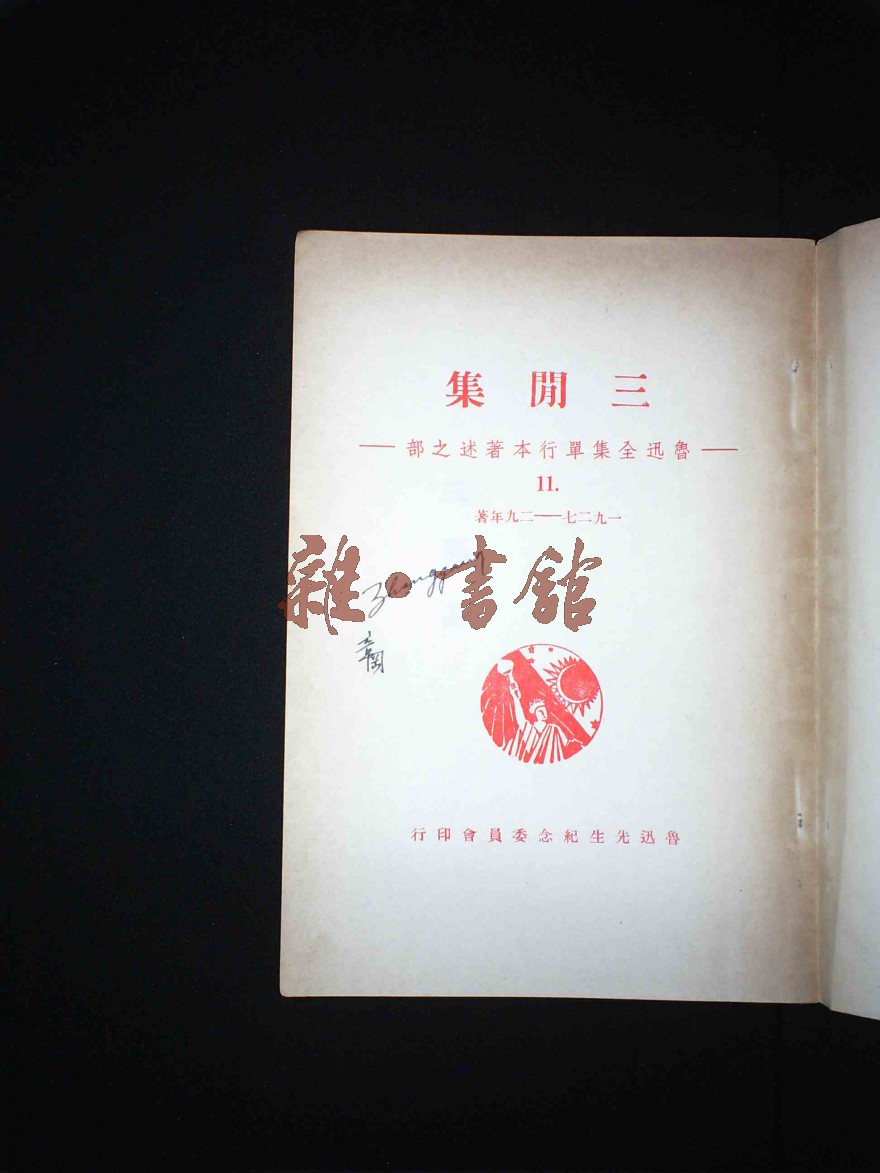 三閒集
——魯迅全集單行本著述之部——
11.
一九二七——二九年著
雜·書館
Zhanggang
章岡
魯迅先生紀念委員會印行